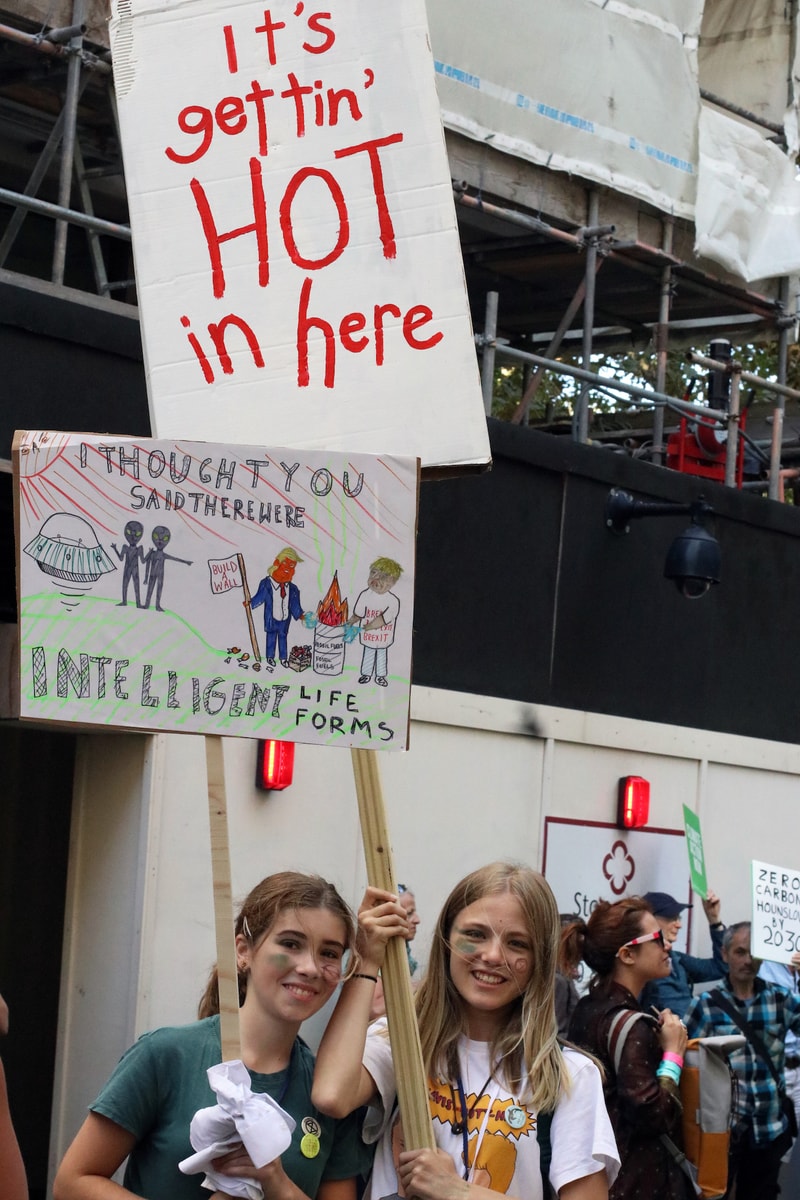 It's
gettin'
HOT
in here
I THOUGHT YOU
SAID THERE WERE
BUILD
A
WALL
BREXIT
INTELLIGENT LIFE
FORMS
ZERO
CARBON
HOUNSLOW
BY
2030